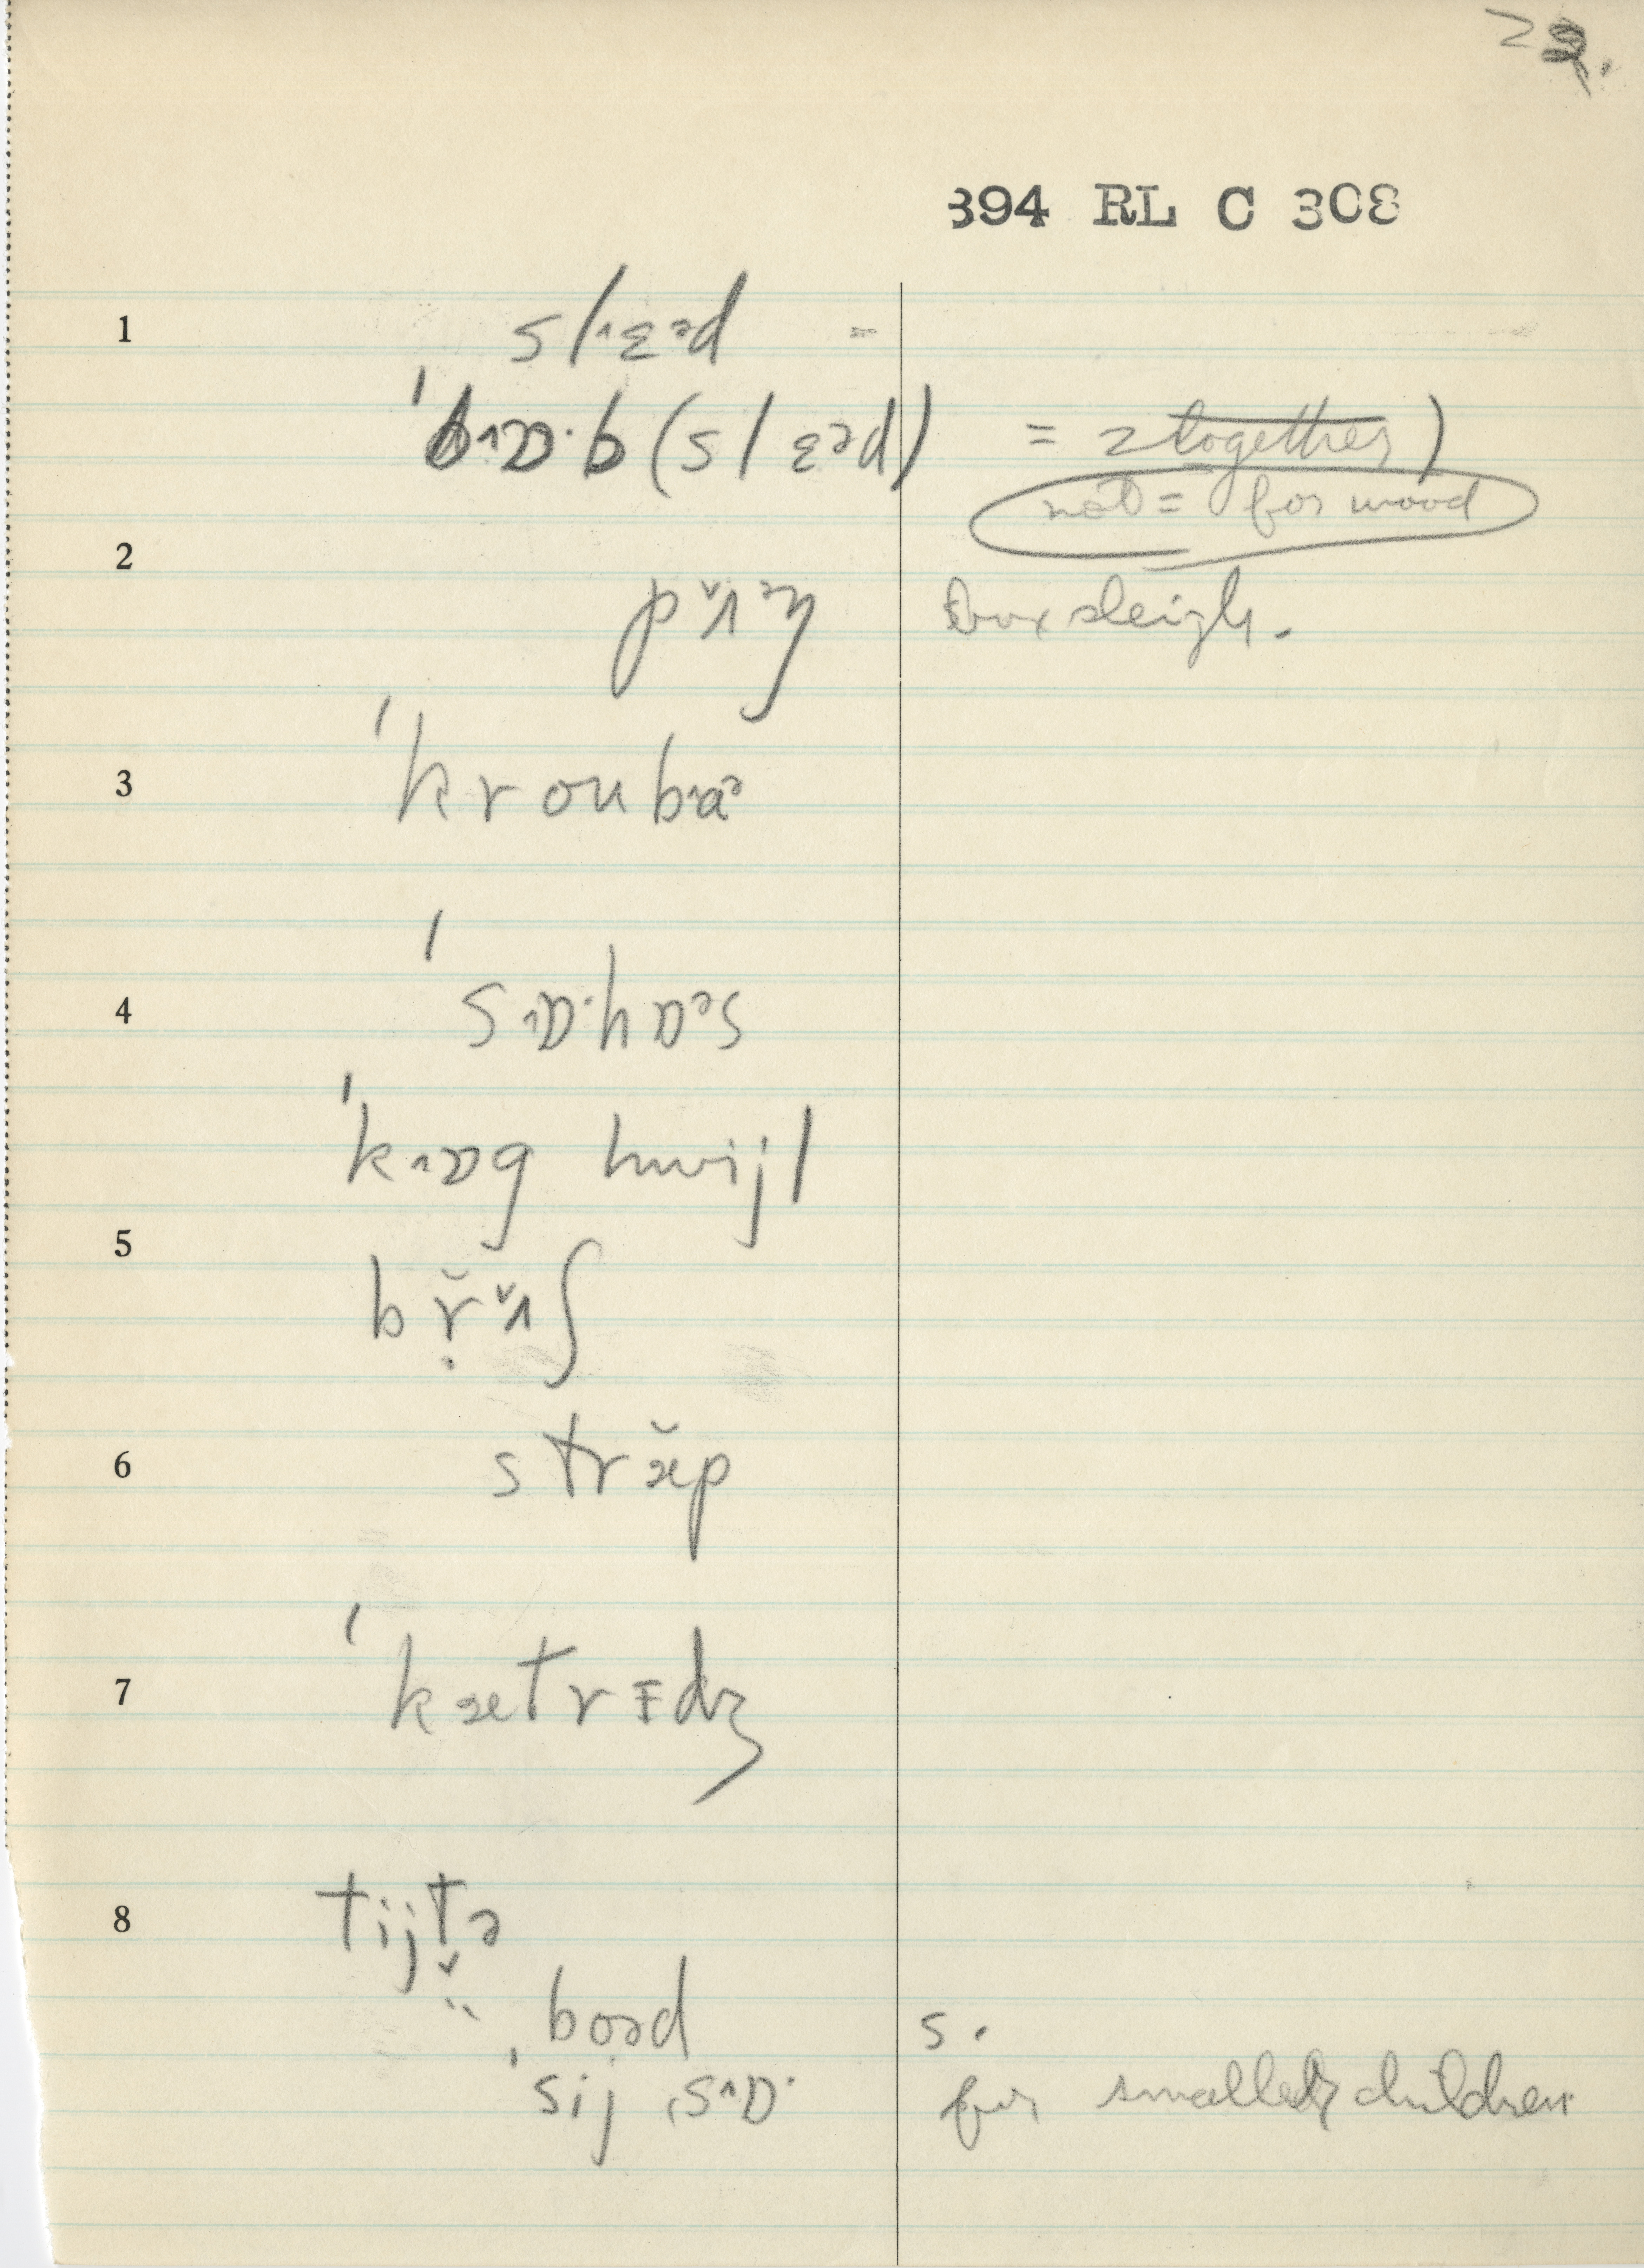 394 RL C 308
1
slˈɛəd =
ˈbɒ·b (slɛəd) = 2 together )
not = for wood
2
pʌ̆ŋ box sleigh.
3
ˈkroubɑə
4
ˈsɒ·hɒəs
ˈkɒg hwijl
5
brʌ̆ʃ
6
stræ̆p
7
ˈkætrɪdʒ
8
tijtə
boəd s.
ˈsij ˌsɒ· for smaller children